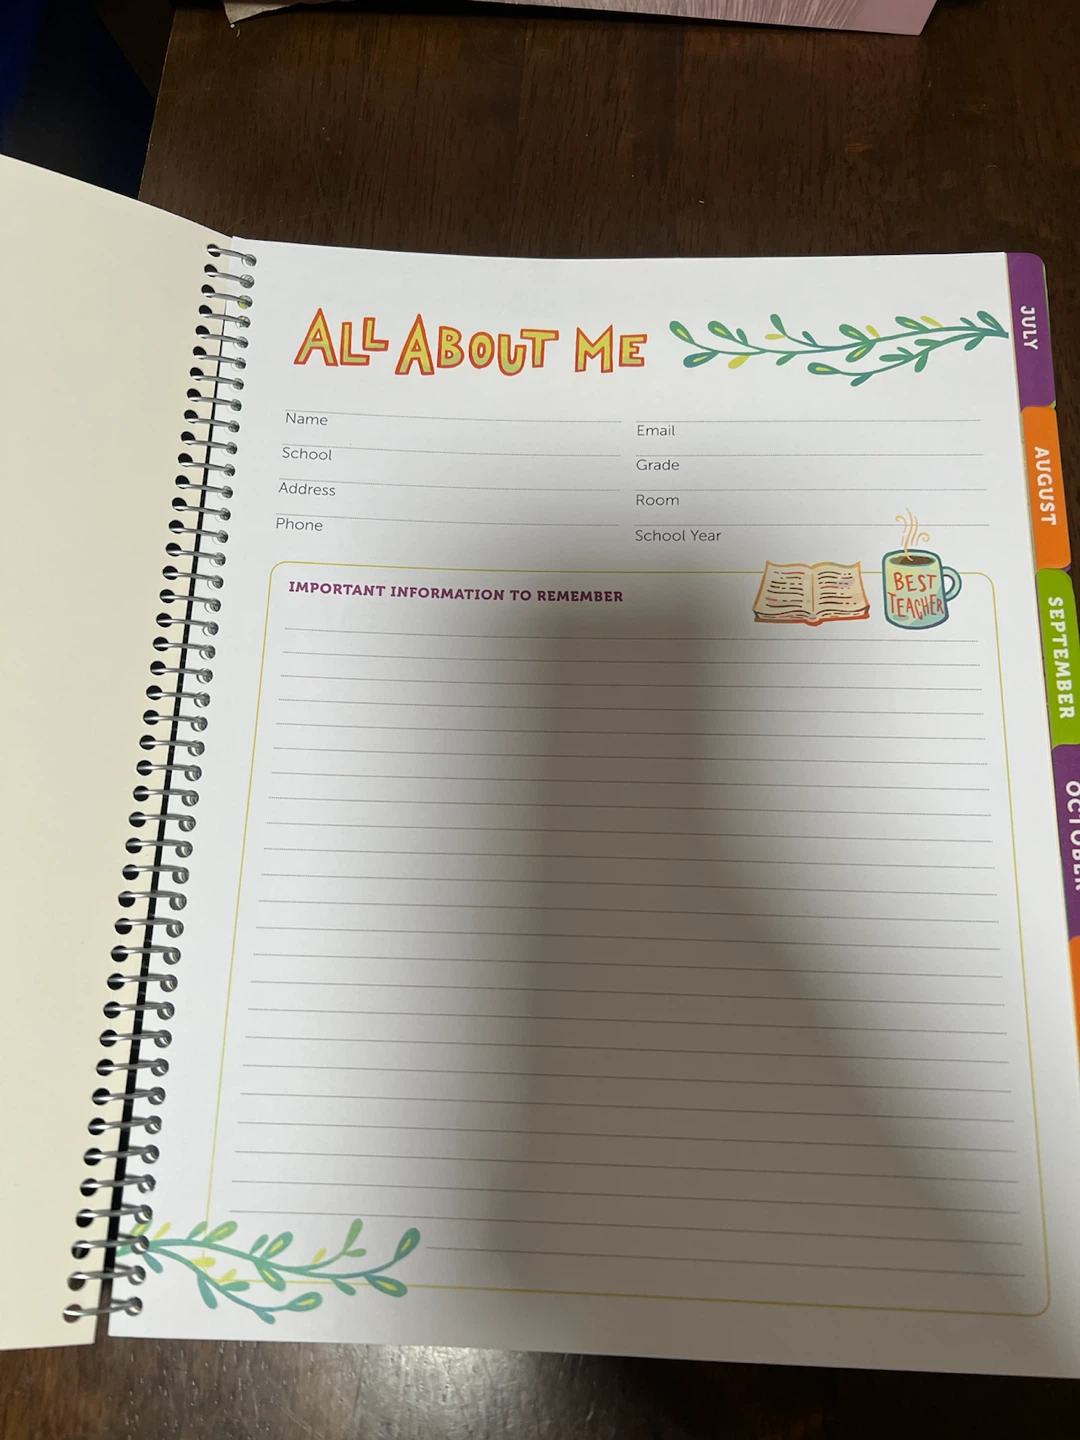 ALL ABOUT ME
Name
Email
School
Grade
Address
Room
Phone
School Year
IMPORTANT INFORMATION TO REMEMBER
BEST
TEACHER
JULY
AUGUST
SEPTEMBER
OCTOBER